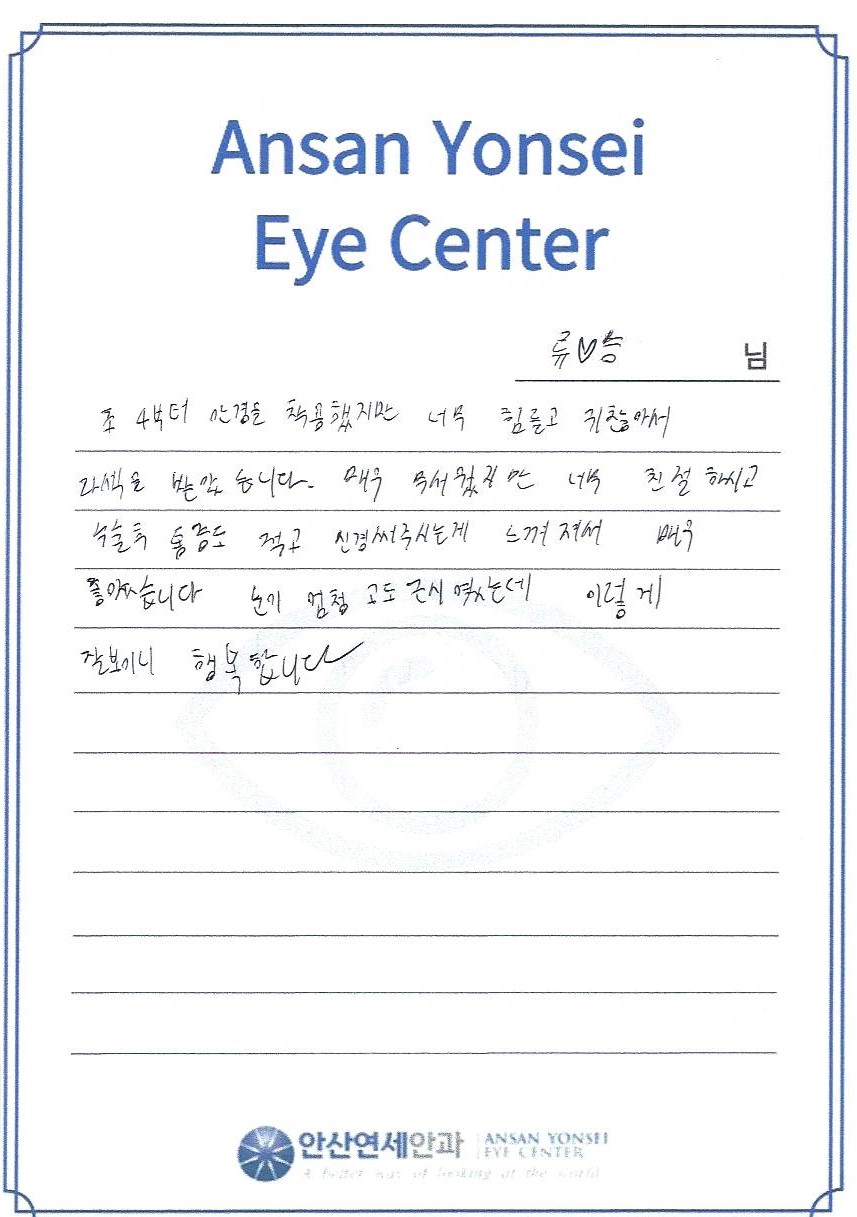 Ansan Yonsei
Eye Center
류♡승 님
초 4부터 안경을 착용했지만 너무 힘들고 귀찮아서
라섹을 받았습니다. 매우 무서웠지만 너무 친절하시고
수술후 통증도 적고 신경써주시는게 느껴져서 매우
좋았습니다 눈이 엄청 고도근시였는데 이렇게
잘보이니 행복합니다
안산연세안과 ANSAN YONSEI
EYE CENTER
A better way of looking at the world